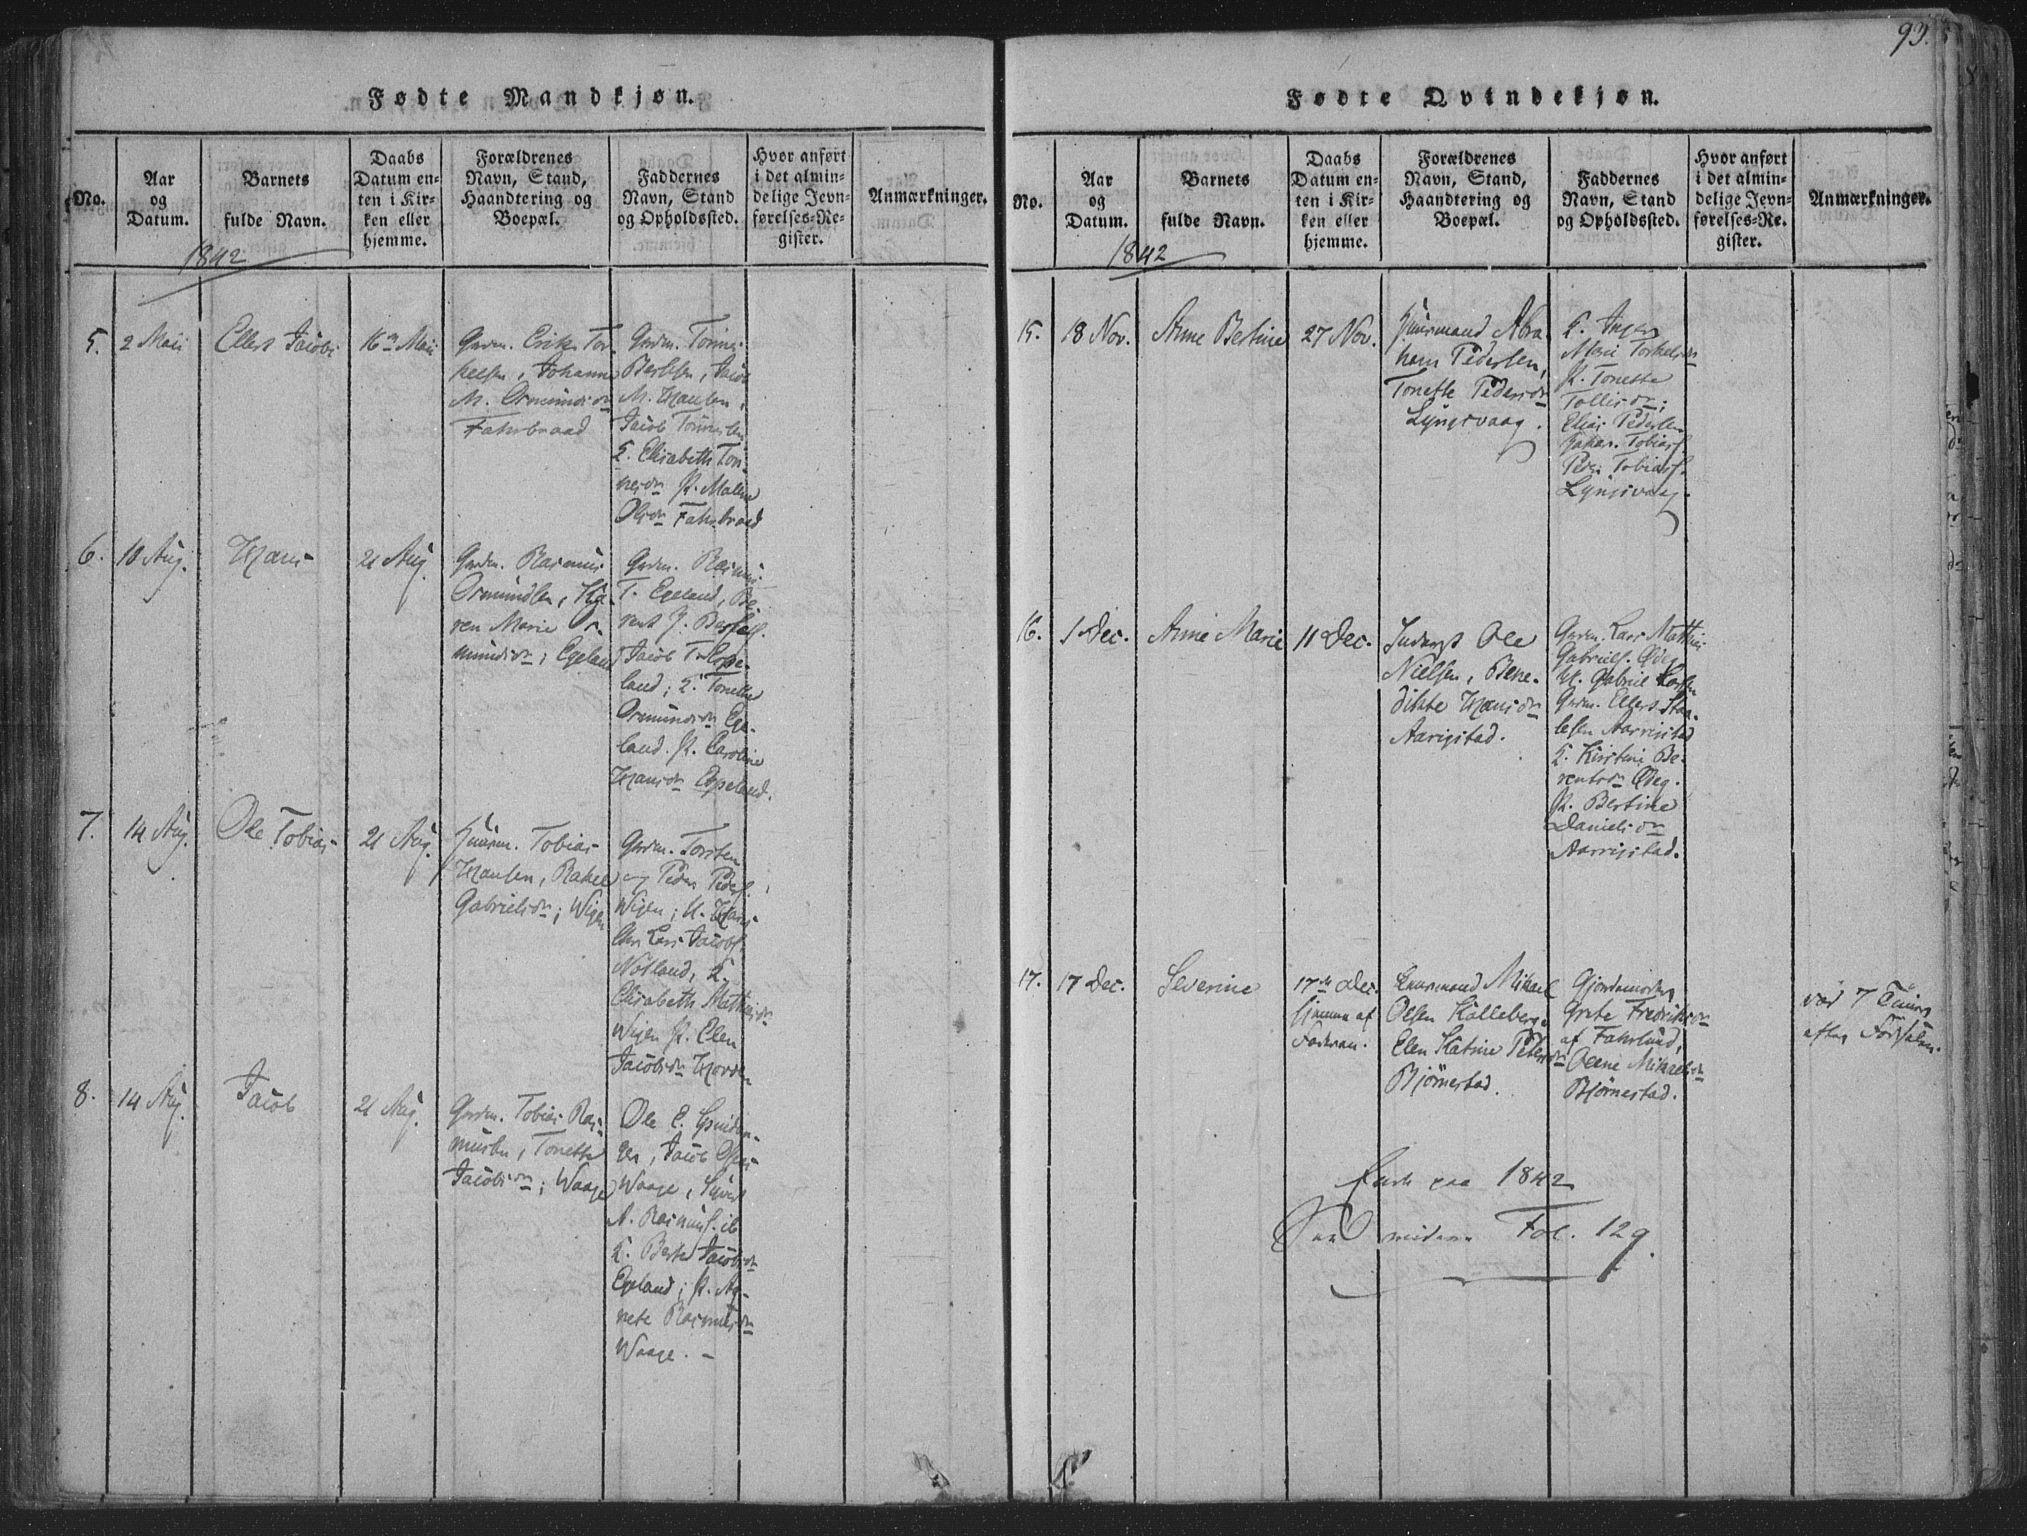 93.
Fødte Mandkjøn.
No.
Aar
og
Datum.
Barnets
fulde Navn.
Daabs
Datum en-
ten i Kir-
ken eller
hjemme.
Forældrenes
Navn, Stand,
Haandtering og
Boepæl.
Faddernes
Navn, Stand
og Opholdssted.
Hvor anført
i det almin-
delige Jevn-
førelses-Re-
gister.
Anmærkninger.
1842
5.
2 Maii
Ellert Jacob
16 Maii
Grdm. Erik Tor-
kelsen, Johanne
M. Ormundsdr
Fahrbraad
Grdm. Tønnes
Bertelsen, Jacob
M. Hansen,
Jacob Tønnesen
Q. Elisabeth Tøn-
nesdr P. Malene
Olsdr Fahrbraad
6.
10 Aug.
Hans
21 Aug.
Grdm. Rasmus
Ormundsen, Ka-
ren Marie Or-
mundsdr; Egeland
Grdm. Rasmus
T. Egeland, Be-
rent J.
Jacob T. Espe-
land; Q. Tonette
Ormundsdr Ege-
land. P. Caroline
Hansdr Espeland.
7.
14 Aug.
Ole Tobias
21 Aug.
Huusm. Tobias
Hansen, Rakel
Gabrielsdr; Wigen
Grdm. Torsten
og Peder Peders.
Wigen; U. Hans
Chr. Lars Jacobs.
Nolland, Q.
Elisabeth Mathiasdr
Wigen P. Elen
Jacobsdr
8.
14 Aug.
Jacob
21 Aug.
Grdm. Tobias Ras-
musen, Tonette
Jacobsdr; Waage
Ole E.
Jacob Ols.
Waage,
A. Rasmus. ib
Q. Berte Jacobsdr
Egeland; P. Ag-
nete Rasmusdr
Waage. –
Fødte Qvindekjøn.
No.
Aar
og
Datum.
Barnets
fulde Navn.
Daabs
Datum en-
ten i Kir-
ken eller
hjemme.
Forældrenes
Navn, Stand,
Haandtering og
Boepæl.
Faddernes
Navn, Stand
og Opholdssted.
Hvor anført
i det almin-
delige Jevn-
førelses-Re-
gister.
Anmærkninger.
1842
15.
18 Nov.
Anne Bertine
27 Nov.
Huusmand Abra-
ham Pedersen,
Tonette Pedersdr
Lyngsvaag.
Q. Inger
Marie Torkelsdr
P. Tonette
Tollisdr;
Elias Pedersen
Johan. Tobias.
Peder Tobias.
Lyngsvaag.
16.
1 Dec.
Anne Marie
11 Dec.
Inderst Ole
Nielsen, Bene-
dikte Hansdr
Aarrestad.
Grdm. Lars Mathias
Gabriels. Ødeg.
U. Gabriel Larsen
Grdm. Ellert Staa-
lesen Aarrestad
Q. Kirstine Be-
rentsdr Ødeg.
P. Bertine
Danielsdr
Aarrestad.
17.
17 Dec.
Severine
17de Dec.
hjemme af
Faderen.
Huusmand Mikael
Olsen Kalleberg
Elen Katrine Petersdr
Bjørnestad.
Gjordemoder
Grete Fredriksdr
af Fahrsund,
Olene Mikaelsdr
Bjørnestad.
død 7 Timer
efter Fødselen.
Ende paa 1842
See videre Fol. 129.